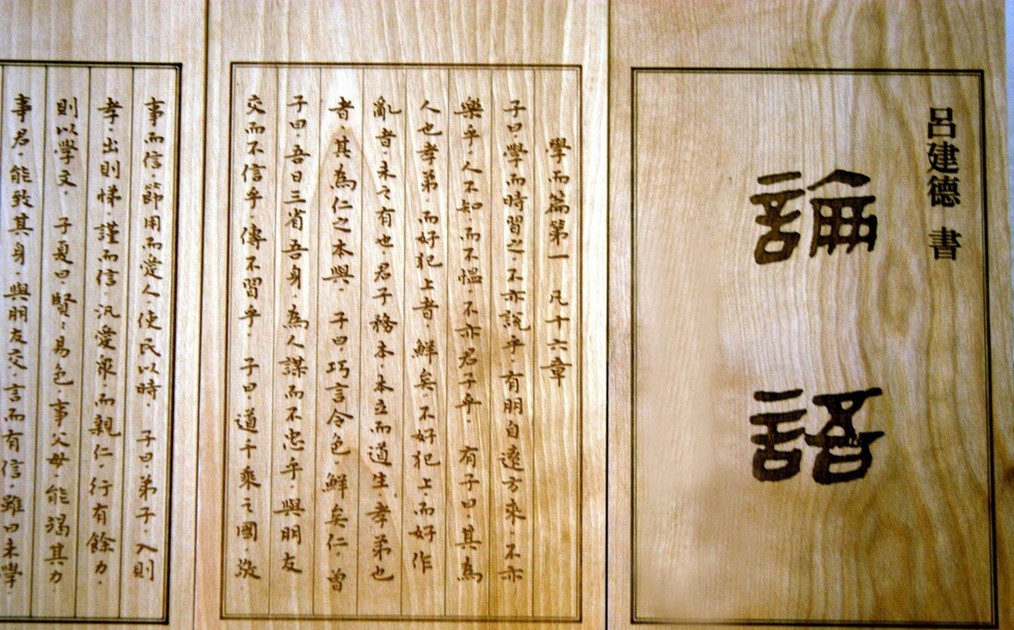 呂建德 書
論語
學而篇第一 凡十六章
子曰.學而時習之.不亦說乎.有朋自遠方來.不亦
樂乎.人不知而不慍.不亦君子乎. 有子曰.其為
人也孝弟.而好犯上者.鮮矣.不好犯上.而好作
亂者.未之有也.君子務本.本立而道生.孝弟也
者.其為仁之本與. 子曰.巧言令色.鮮矣仁.曾
子曰.吾日三省吾身.為人謀而不忠乎.與朋友
交而不信乎.傳不習乎. 子曰.道千乘之國.敬
事而信.節用而愛人.使民以時. 子曰.弟子.入則
孝.出則悌.謹而信.汎愛眾.而親仁.行有餘力.
則以學文. 子夏曰.賢〻易色.事父母.能竭其力
事君.能致其身.與朋友交.言而有信.雖曰未學